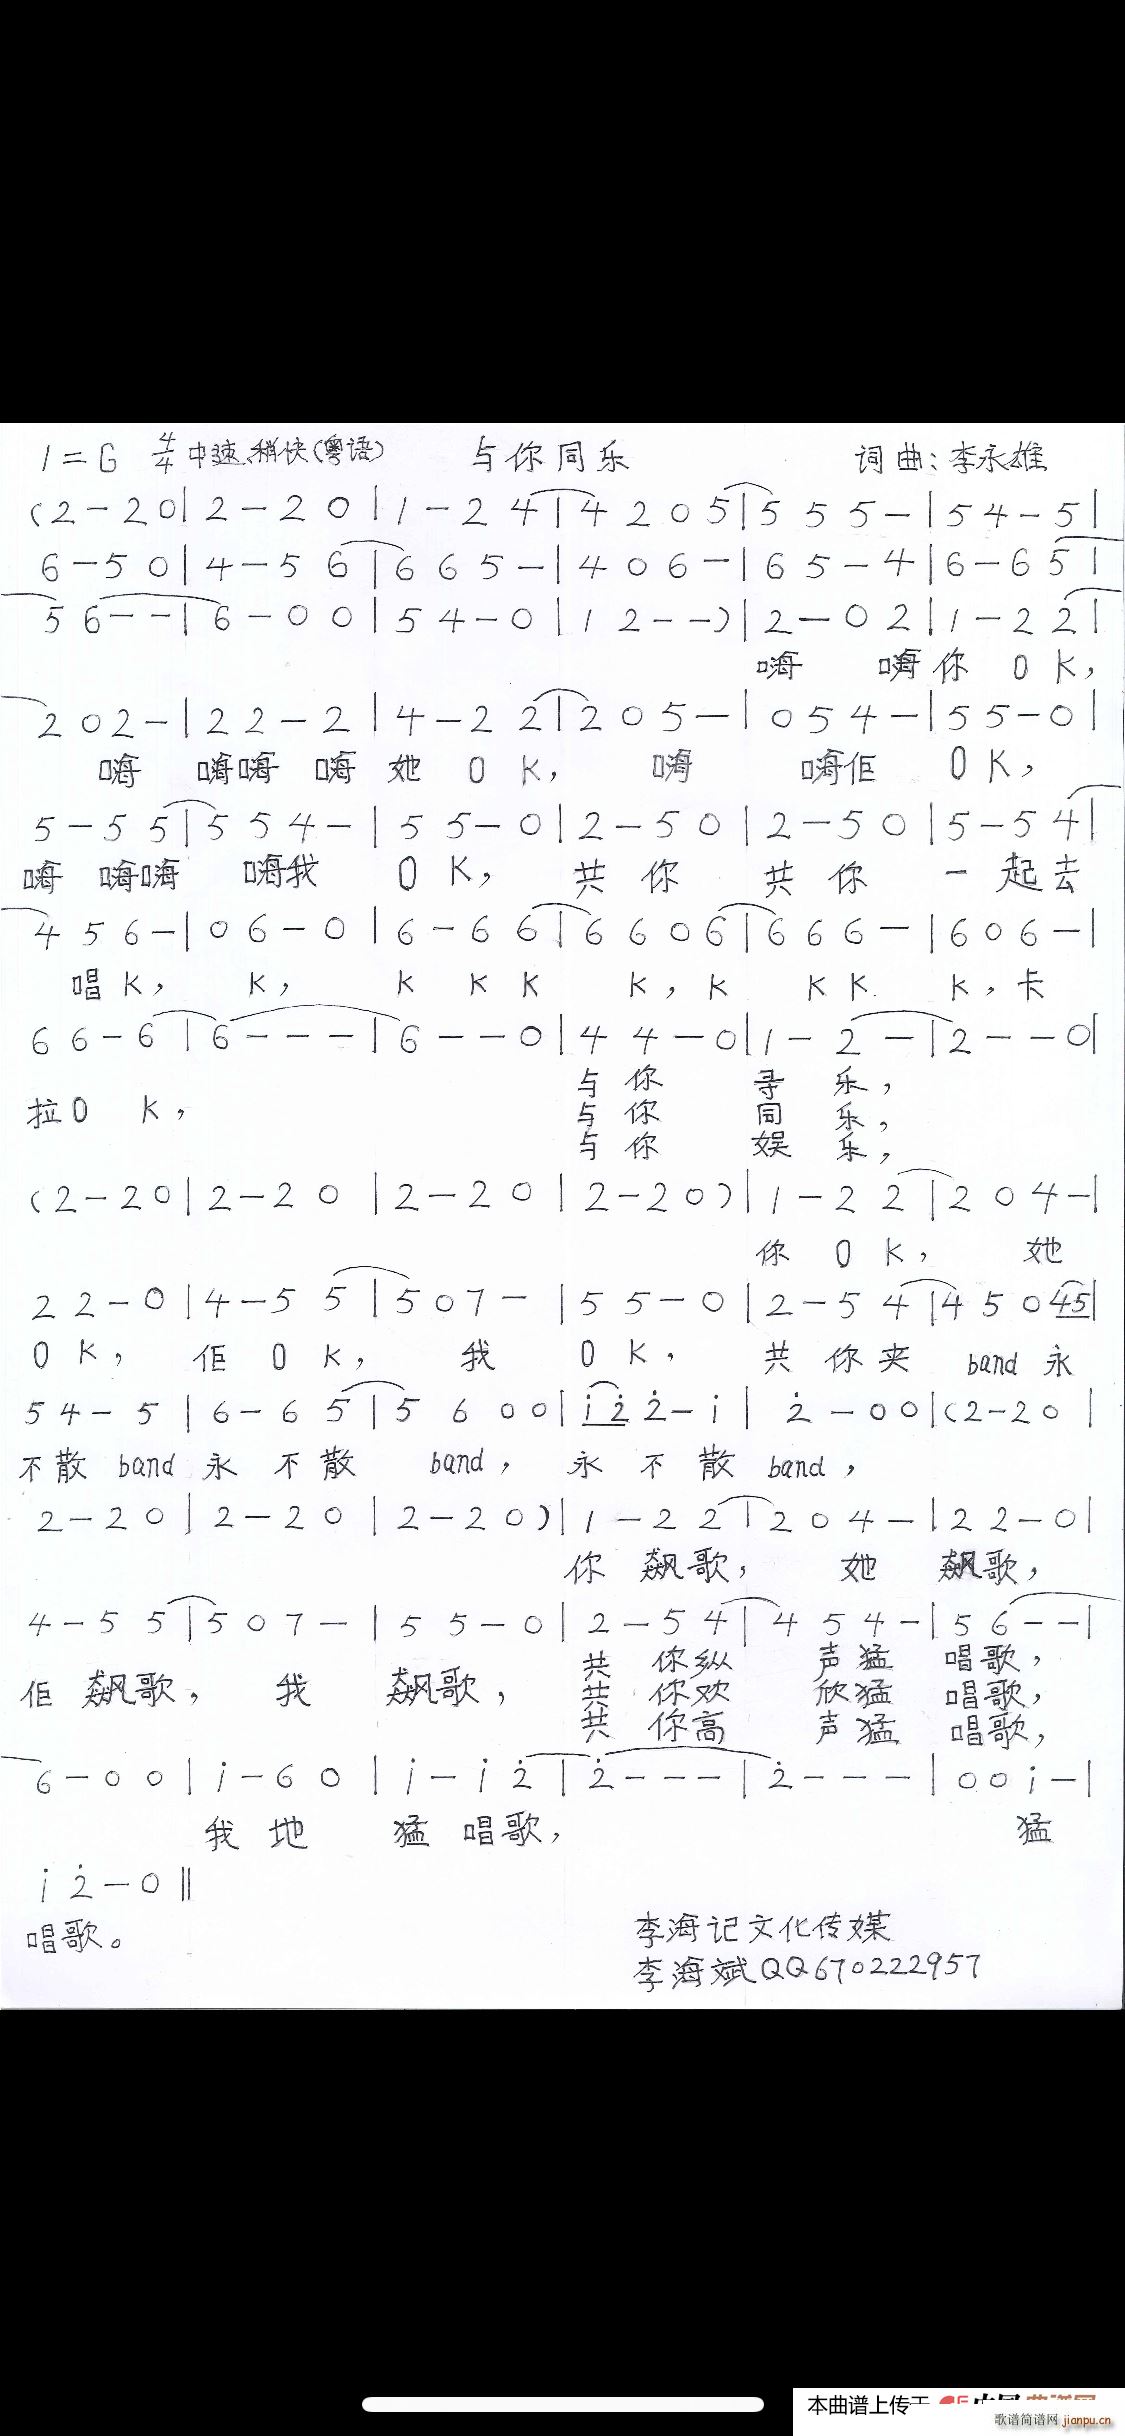 1=G 4/4 中速、稍快(粤语) 与你同乐 词曲:李永雄
(2-20|2-20|1-24|4205|555-|54-5|
6-50|4-56|665-|406-|65-4|6-65|
56--|6-00|54-0|12--)|2-02|1-22|
嗨 嗨你 O K,
202-|22-2|4-22|205-|054-|55-0|
嗨 嗨嗨 嗨 她 O K, 嗨 嗨佢 O K,
5-55|554-|55-0|2-50|2-50|5-54|
嗨 嗨嗨 嗨我 O K, 共 你 共 你 一 起去
456-|06-0|6-66|6606|666-|606-|
唱K, K, K K K K, K K K K, 卡
66-6|6---|6--0|44-0|1-2-|2--0|
拉O K, 与 你 寻 乐,
与 你 同 乐,
与 你 娱 乐,
(2-20|2-20|2-20|2-20)|1-22|204-|
你 O K, 她
22-0|4-55|507-|55-0|2-54|45045|
O K, 佢 O K, 我 O K, 共 你夹 band 永
54-5|6-65|5600|i̇2̇2̇-i̇|2̇-00|(2-20|
不散 band 永 不 散 band, 永 不 散 band,
2-20|2-20|2-20)|1-22|204-|22-0|
你 飙歌, 她 飙歌,
4-55|507-|55-0|2-54|454-|56--|
佢 飙歌, 我 飙歌, 共 你纵 声猛 唱歌,
共 你欢 欣猛 唱歌,
共 你高 声猛 唱歌,
6-00|i̇-60|i̇-i̇2̇|2̇---|2̇---|00i̇-|
我 地 猛 唱歌, 猛
i̇2̇-0‖
唱歌。
李海记文化传媒
李海斌QQ670222957
本曲谱上传于
歌谱简谱网 jianpu.cn